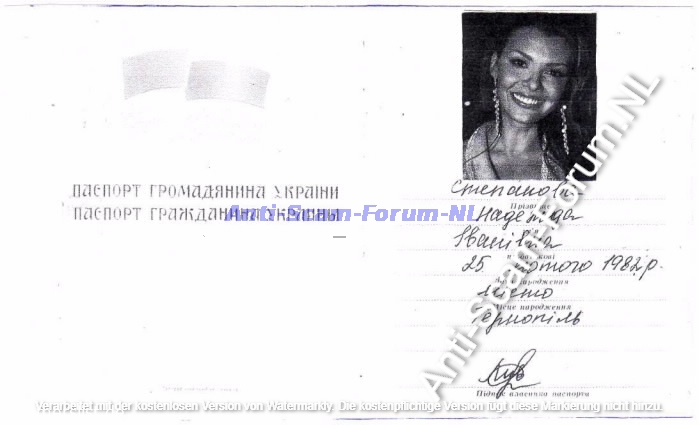 ПАСПОРТ ГРОМАДЯНИНА УКРАЇНИ
ПАСПОРТ ГРАЖДАНИНА УКРАИНЫ
Anti-Scam-Forum-NL
Anti-Scam-Forum.NL
Прізвище
Надежда
Іванівна
По батькові
25 лютого 1982 р.
Дата народження
місто
Місце народження
Тернопіль
Підпис власника паспорта
Verarbeitet mit der kostenlosen Version von Watermarkly. Die kostenpflichtige Version fügt diese Markierung nicht hinzu.